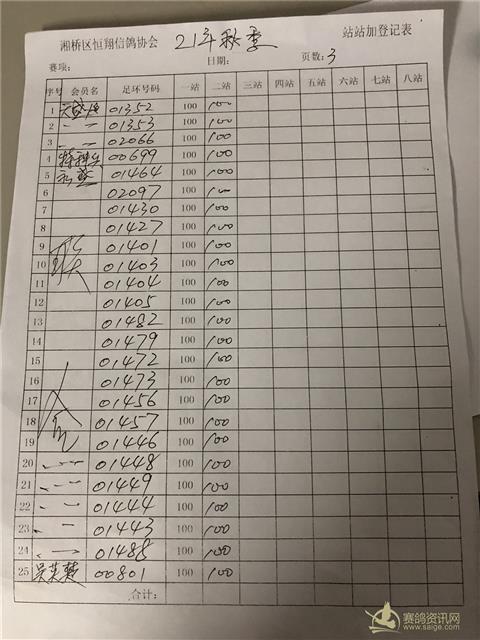 湘桥区恒翔信鸽协会 21年秋季 站站加登记表
赛项: 日期: 页数:3
序号 会员名 足环号码 一站 二站 三站 四站 五站 六站 七站 八站
1 01352 100 100
2 01353 100 100
3 02066 100 100
4 特种兵 00699 100 100
5 01464 100 100
6 02097 100 100
7 01430 100 100
8 01427 100 100
9 01401 100 100
10 01403 100 100
11 01404 100 100
12 01405 100 100
13 01482 100 100
14 01479 100 100
15 01472 100 100
16 01473 100 100
17 01456 100 100
18 01457 100 100
19 01446 100 100
20 01448 100 100
21 01449 100 100
22 01444 100 100
23 01443 100 100
24 01488 100 100
25 00801 100 100
合计:
赛鸽资讯网
www.saige.com